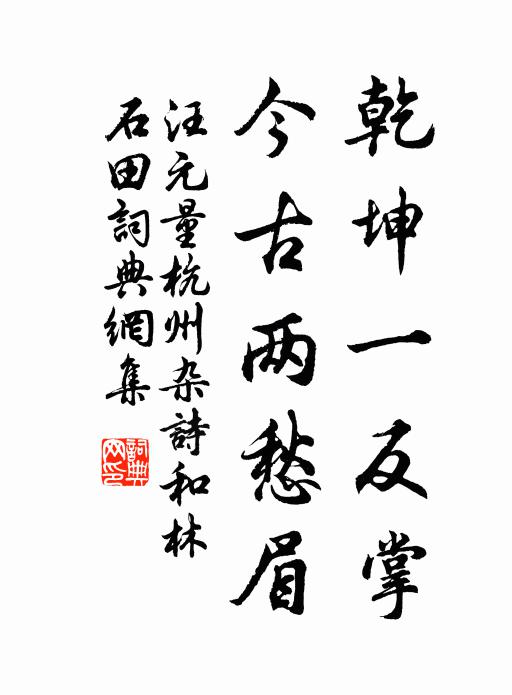 乾坤一反掌
今古两愁眉
汪元量杭州杂詩和林
石田詞典網集
詞典
网印